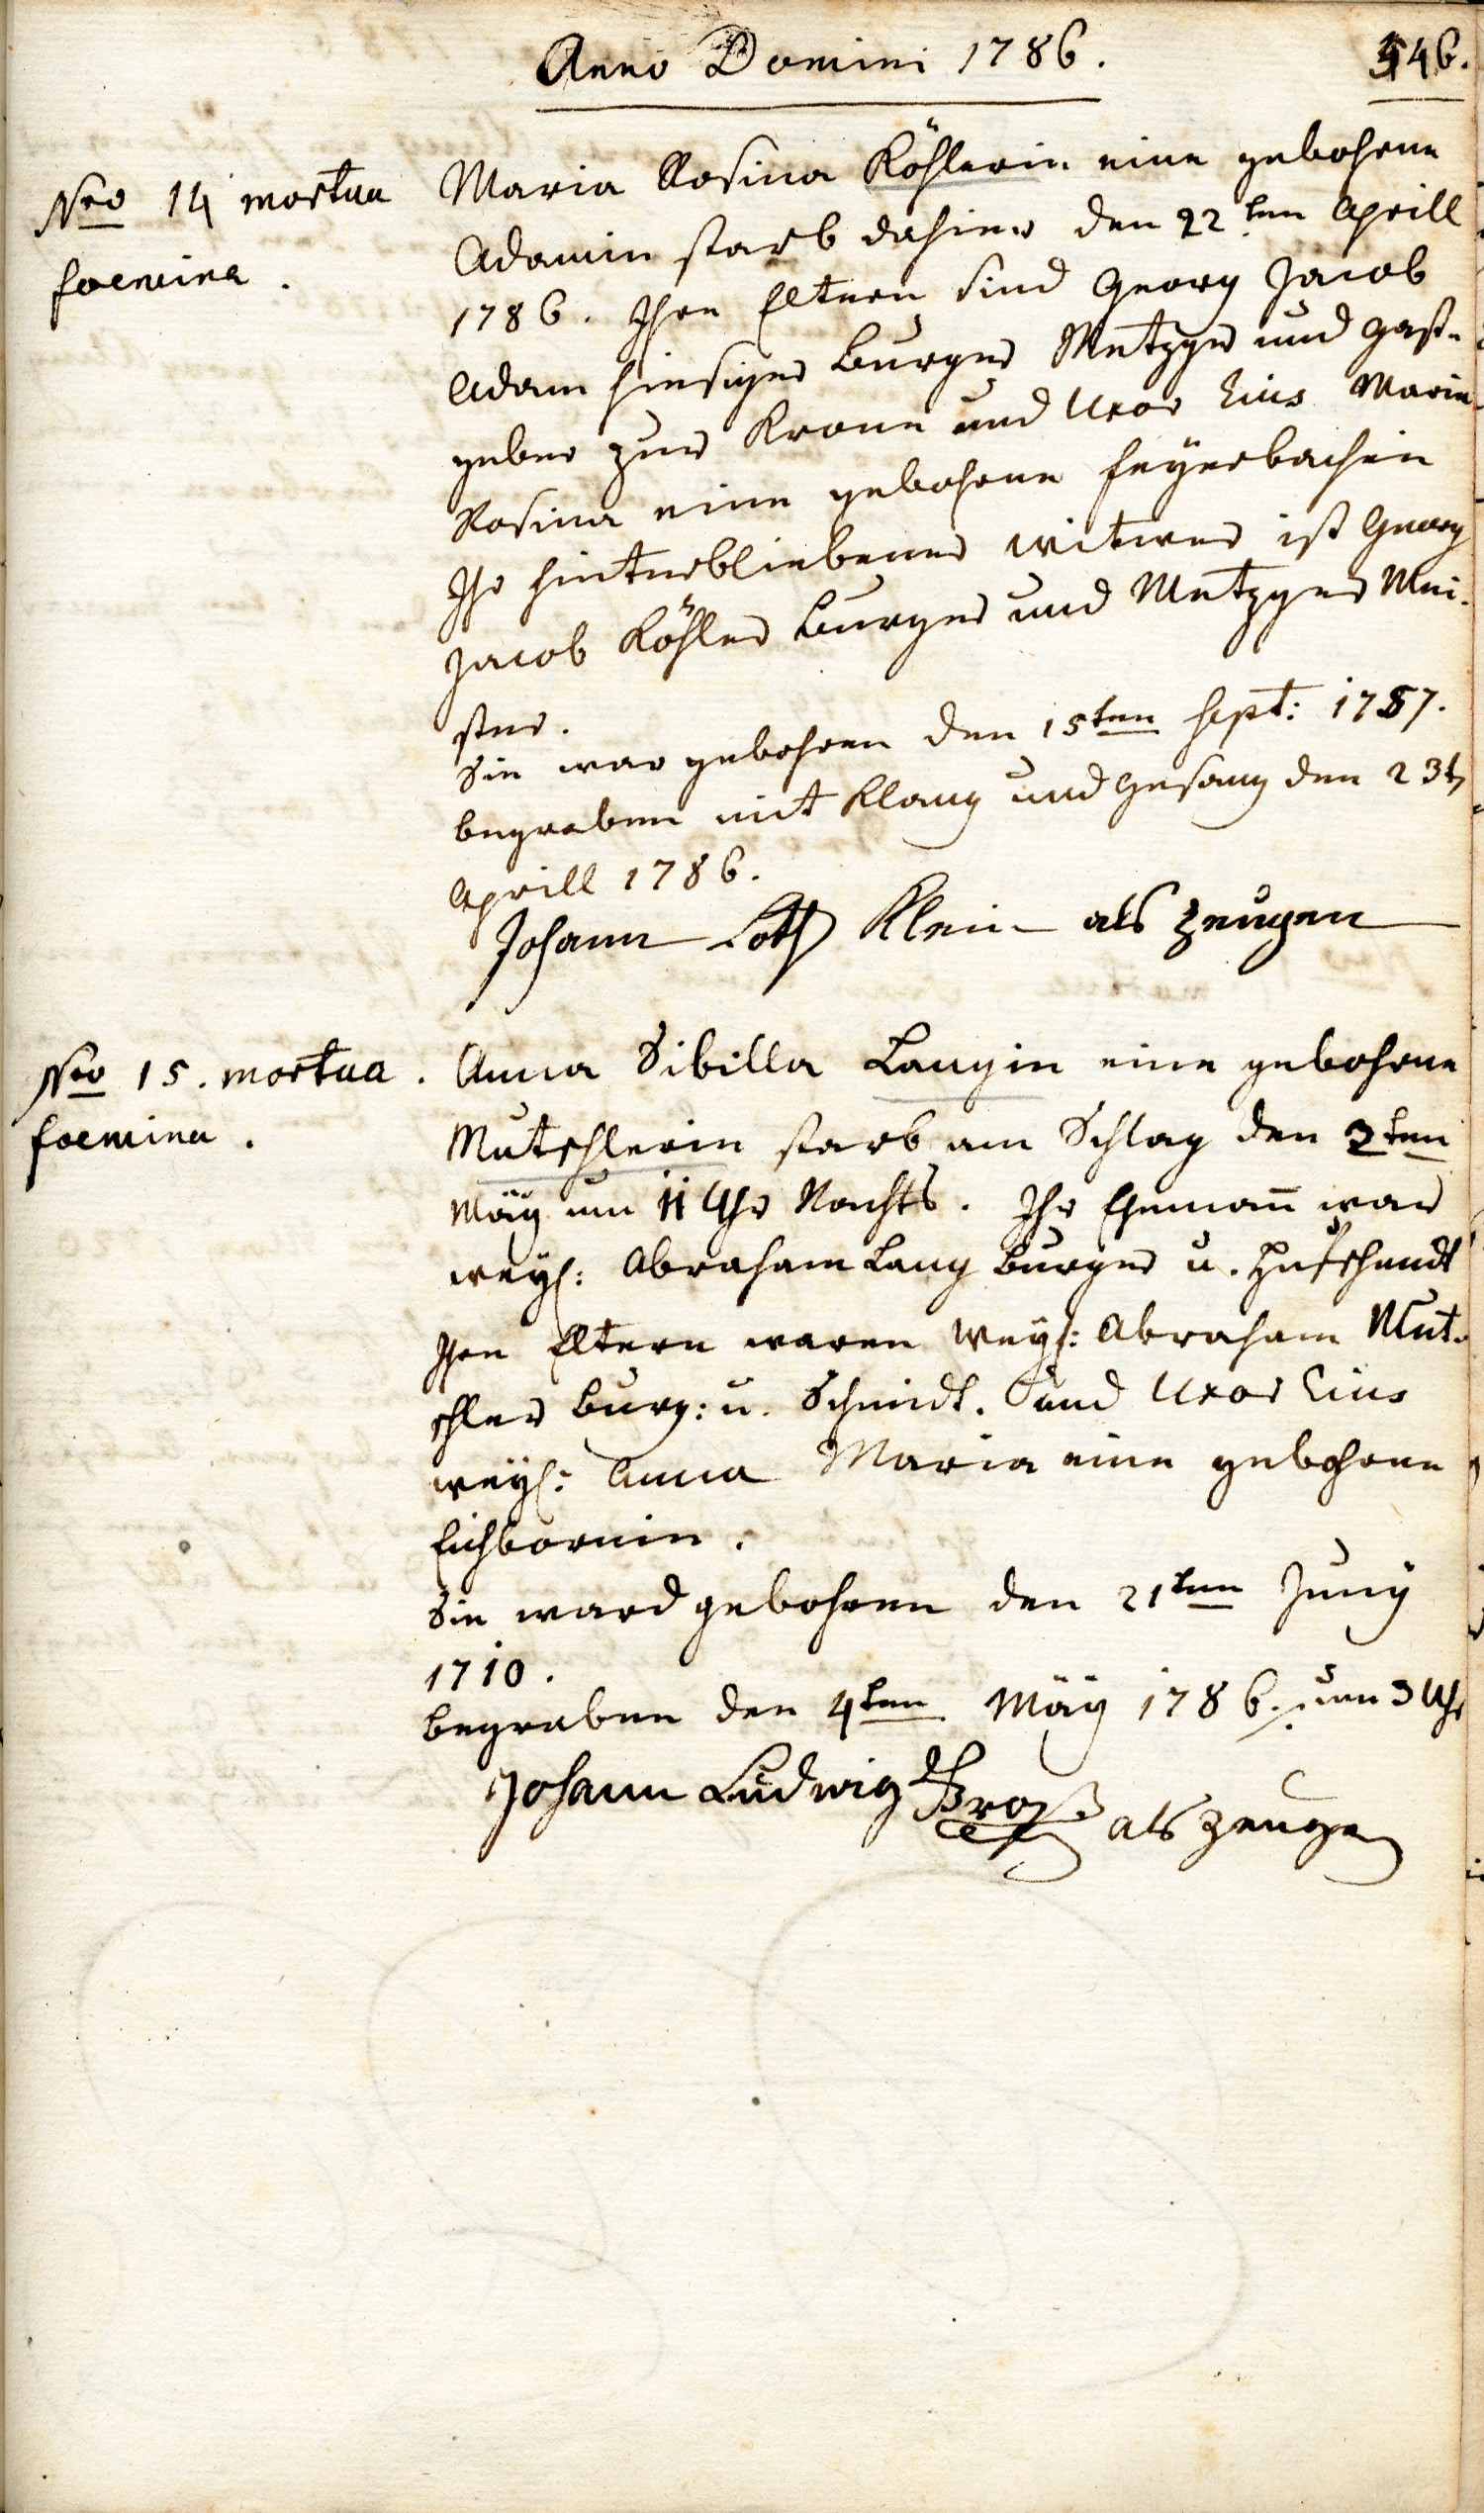 Anno Domini 1786.
546.
Nro 14 mortua
foemina.
Maria Rosina Köhlerin eine gebohrne
Adamin starb dahier den 22ten Aprill
1786. Ihre Eltern sind Georg Jacob
Adam hiesiger Burger Metzger und Gast-
geber zur Krone und Uxor Eius Maria
Rosina eine gebohrne Feyerbachin
Ihr hinterbliebener witwer ist Georg
Jacob Köhler Burger und Metzger Mei-
ster.
Sie war gebohren den 15ten Sept: 1757.
begraben mit Klang und Gesang den 23t
Aprill 1786.
Johann Loth Klein als zeugen
Nro 15. mortua.
foemina.
Anna Sibilla Langin eine gebohrne
Mutschlerin starb am Schlag den 2ten
Mäy um 11 Uhr Nachts. Ihr Ehemañ war
weyl: Abraham Lang Burger u. Hufschmidt
Ihre Eltern waren weyl: Abraham Mut-
schler Burg: u. Schmidt. und Uxor Eius
weyl: Anna Maria eine gebohrne
Eichbornin.
Sie ward gebohren den 21ten Juny
1710.
begraben den 4ten Mäy 1786. um 3 Uhr
Johann Ludwig als zeugen